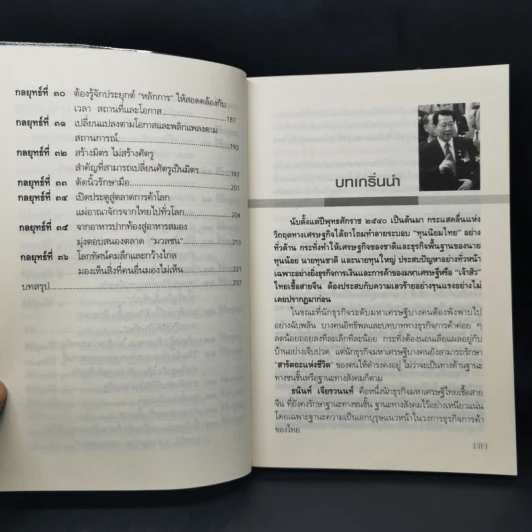 กลยุทธ์ที่ ๓๐ ต้องรู้จักประยุกต์ "หลักการ" ให้สอดคล้องกับ
เวลา สถานที่และโอกาส 187
กลยุทธ์ที่ ๓๑ เปลี่ยนแปลงตามโอกาสและพลิกแพลงตาม
สถานการณ์ 192
กลยุทธ์ที่ ๓๒ สร้างมิตร ไม่สร้างศัตรู
สำคัญที่สามารถเปลี่ยนศัตรูเป็นมิตร 197
กลยุทธ์ที่ ๓๓ ตัดนิ้วรักษามือ 201
กลยุทธ์ที่ ๓๔ เปิดประตูสู่ตลาดการค้าโลก
แผ่อาณาจักรจากไทยไปทั่วโลก 204
กลยุทธ์ที่ ๓๕ จากอาหารปากท้องสู่อาหารสมอง
มุ่งตอบสนองตลาด "มวลชน" 213
กลยุทธ์ที่ ๓๖ โลกทัศน์คมลึกและกว้างไกล
มองเห็นสิ่งที่คนอื่นมองไม่เห็น 221
บทสรุป 237
บทเกริ่นนำ
นับตั้งแต่ปีพุทธศักราช ๒๕๔๐ เป็นต้นมา กระแสคลื่นแห่ง
วิกฤตทางเศรษฐกิจได้ถาโถมทำลายระบอบ "ทุนนิยมไทย" อย่าง
ทั่วด้าน กระทั่งทำให้เศรษฐกิจของชาติและธุรกิจพื้นฐานของนาย
ทุนน้อย นายทุนชาติ และนายทุนใหญ่ ประสบปัญหาอย่างทั่วหน้า
เฉพาะอย่างยิ่งธุรกิจการเงินและการค้าของมหาเศรษฐีหรือ "เจ้าสัว"
ไทยเชื้อสายจีน ต้องประสบกับความเลวร้ายอย่างรุนแรงอย่างไม่
เคยปรากฏมาก่อน
ในขณะที่นักธุรกิจระดับมหาเศรษฐีบางคนต้องพังพาบไป
อย่างฉับพลัน บางคนอิทธิพลและบทบาททางธุรกิจการค้าค่อย ๆ
ลดน้อยถอยลงทีละเล็กทีละน้อย กระทั่งต้องนอนเลียแผลอยู่กับ
บ้านอย่างเจ็บปวด แต่นักธุรกิจมหาเศรษฐีบางคนยังสามารถรักษา
"สารัตถะแห่งชีวิต" ของตนให้ดำรงคงอยู่ ไม่ว่าจะเป็นทางด้านฐานะ
ทางชนชั้นหรือฐานะทางสังคมก็ตาม
ธนินท์ เจียรวนนท์ คือหนึ่งนักธุรกิจมหาเศรษฐีไทยเชื้อสาย
จีน ที่ยังคงรักษาฐานะทางชนชั้น ฐานะทางสังคมไว้อย่างเหนียวแน่น
โดยเฉพาะฐานะความเป็นเอกบุรุษแนวหน้าในวงการธุรกิจการค้า
ของไทย
[ 11 ]